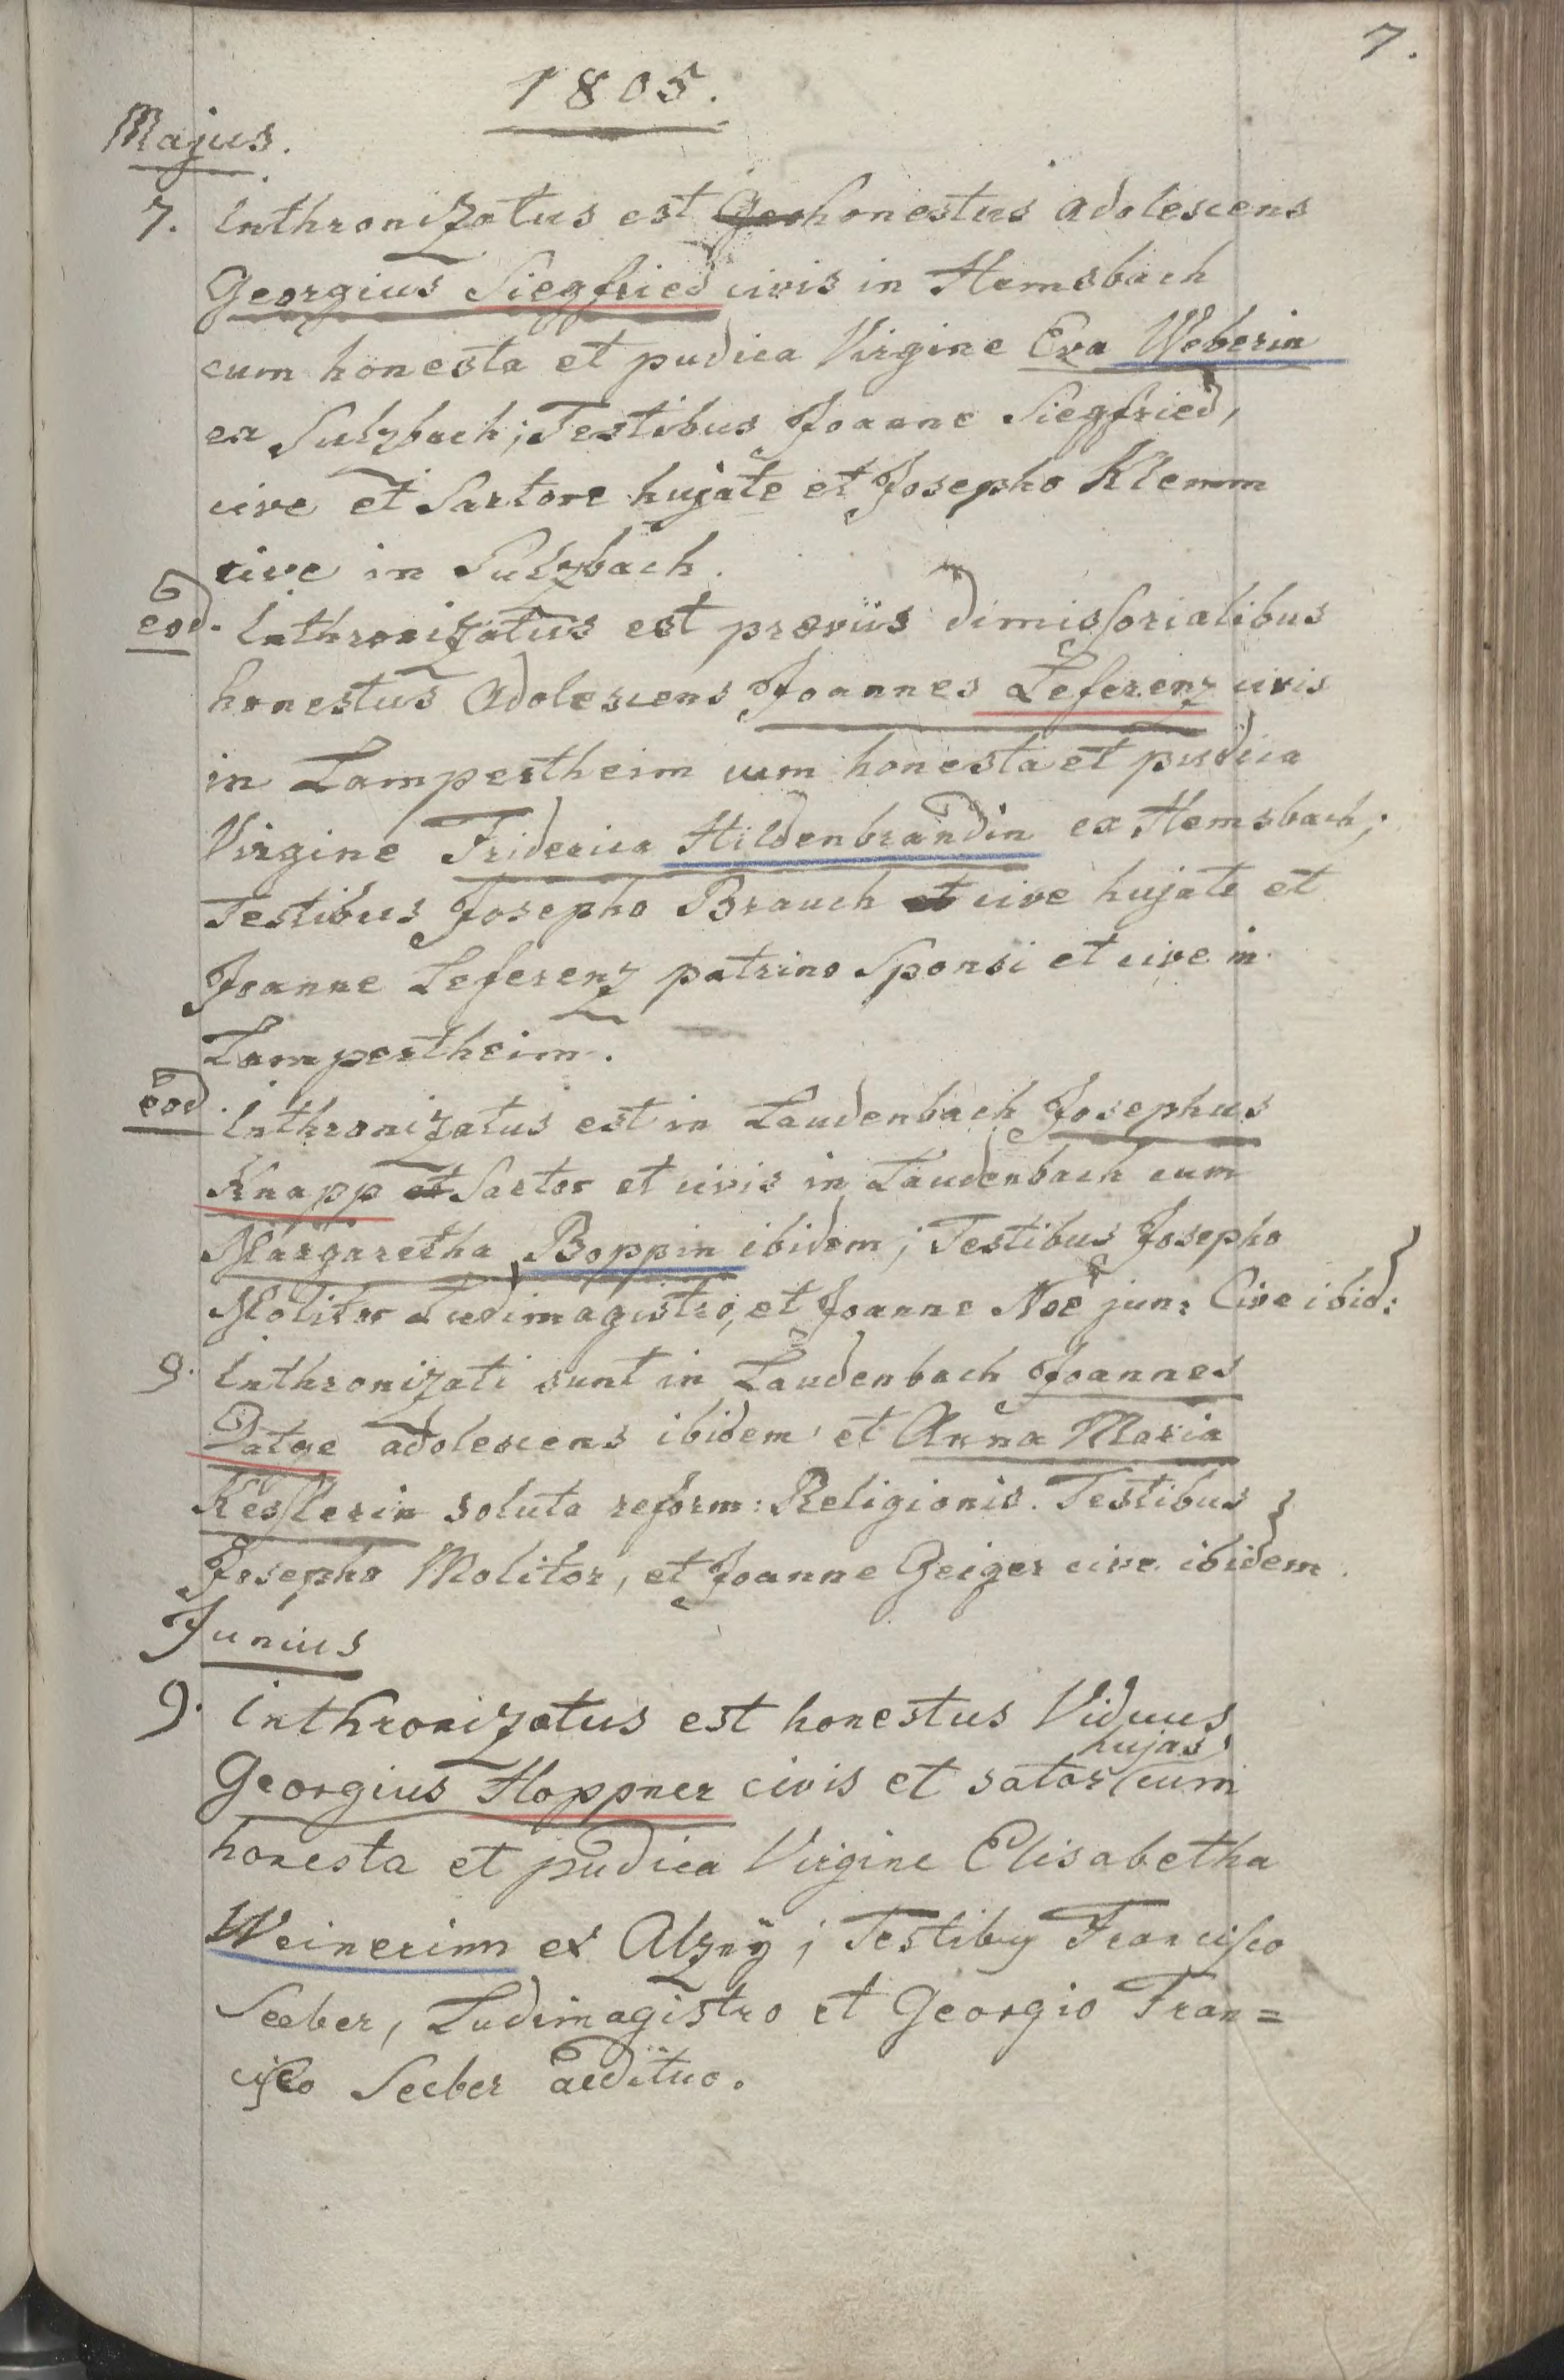 7.
1805.
Majus.
7. Inthronizatus est Geo honestus adolescens
Georgius Siegfried civis in Hemsbach
cum honesta et pudica Virgine Eva Weberin
ex Sulzbach; Testibus Joanne Siegfried,
cive et Sartore hujate et Josepho Klemm
cive in Sulzbach.
eod. Inthronizatus est praeviis dimissorialibus
honestus adolescens Joannes Leferenz civis
in Lampertheim cum honesta et pudica
Virgine Friderica Hildenbrandin ex Hemsbach;
Testibus Josepho Brauch et cive hujate et
Joanne Leferenz patrino Sponsi et cive in
Lampertheim.
eod. Inthronizatus est in Laudenbach Josephus
Knapp et Sartor et civis in Laudenbach cum
Margaretha Boppin ibidem; Testibus Josepho
Molitor Ludimagistro, et Joanne Noe jun: Cive ibid:
9. Inthronizati sunt in Laudenbach Joannes
adolescens ibidem et Anna Maria
Kesslerin soluta reform: Religionis. Testibus
Josepho Molitor, et Joanne Geiger cive ibidem.
Junius
9. Inthronizatus est honestus Viduus
hujas
Georgius Hoppner civis et sator cum
honesta et pudica Virgine Elisabetha
Weinerinn ex ; Testibus Francisco
Seeber, Ludimagistro et Georgio Fran=
cisco Seeber aedituo.